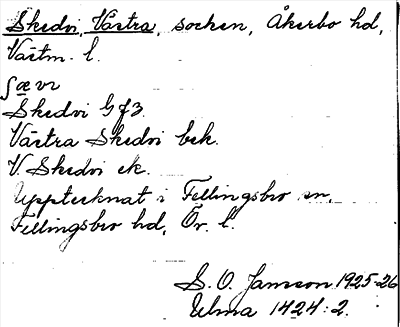 Skedvi, Västra, socken, Åkerbo hd,
Västm. l.
ʃævi
Skedvi Gf3.
Västra Skedvi bek.
V Skedvi ek.
Upptecknat i Fellingsbro sn,
Fellingsbro hd, Ör. l.
S. O. Jansson 1925-26
Ulma 1424:2.